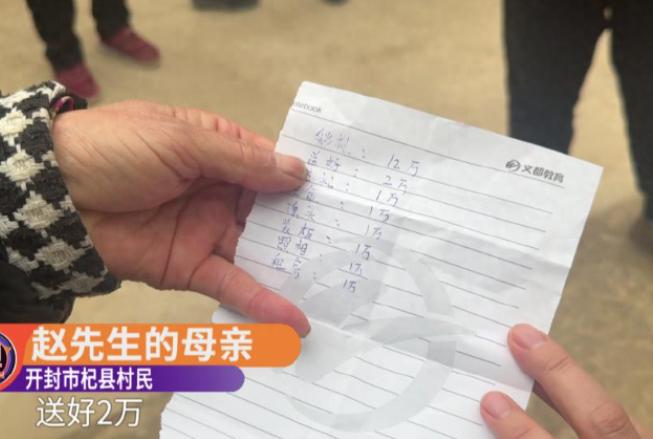 notebook
文都教育
彩礼：12万
送好：2万
：1万
：1万
：1万
：1万
照相：1万
：1万
赵先生的母亲
开封市杞县村民
送好2万